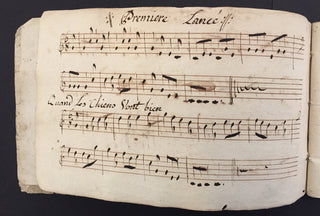 Premiere Lancé
Quand les Chiens Vont bien